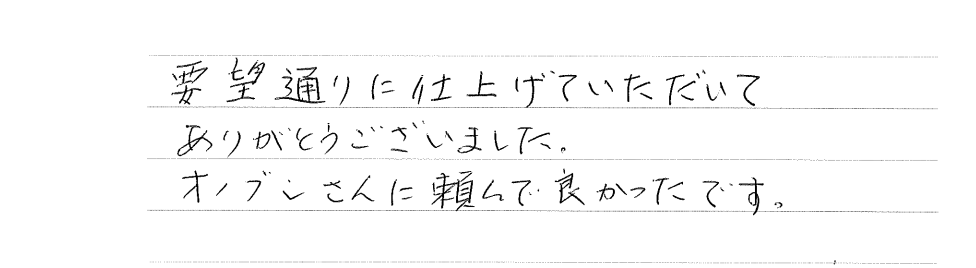 要望通りに仕上げていただいて
ありがとうございました。
オノブンさんに頼んで良かったです。